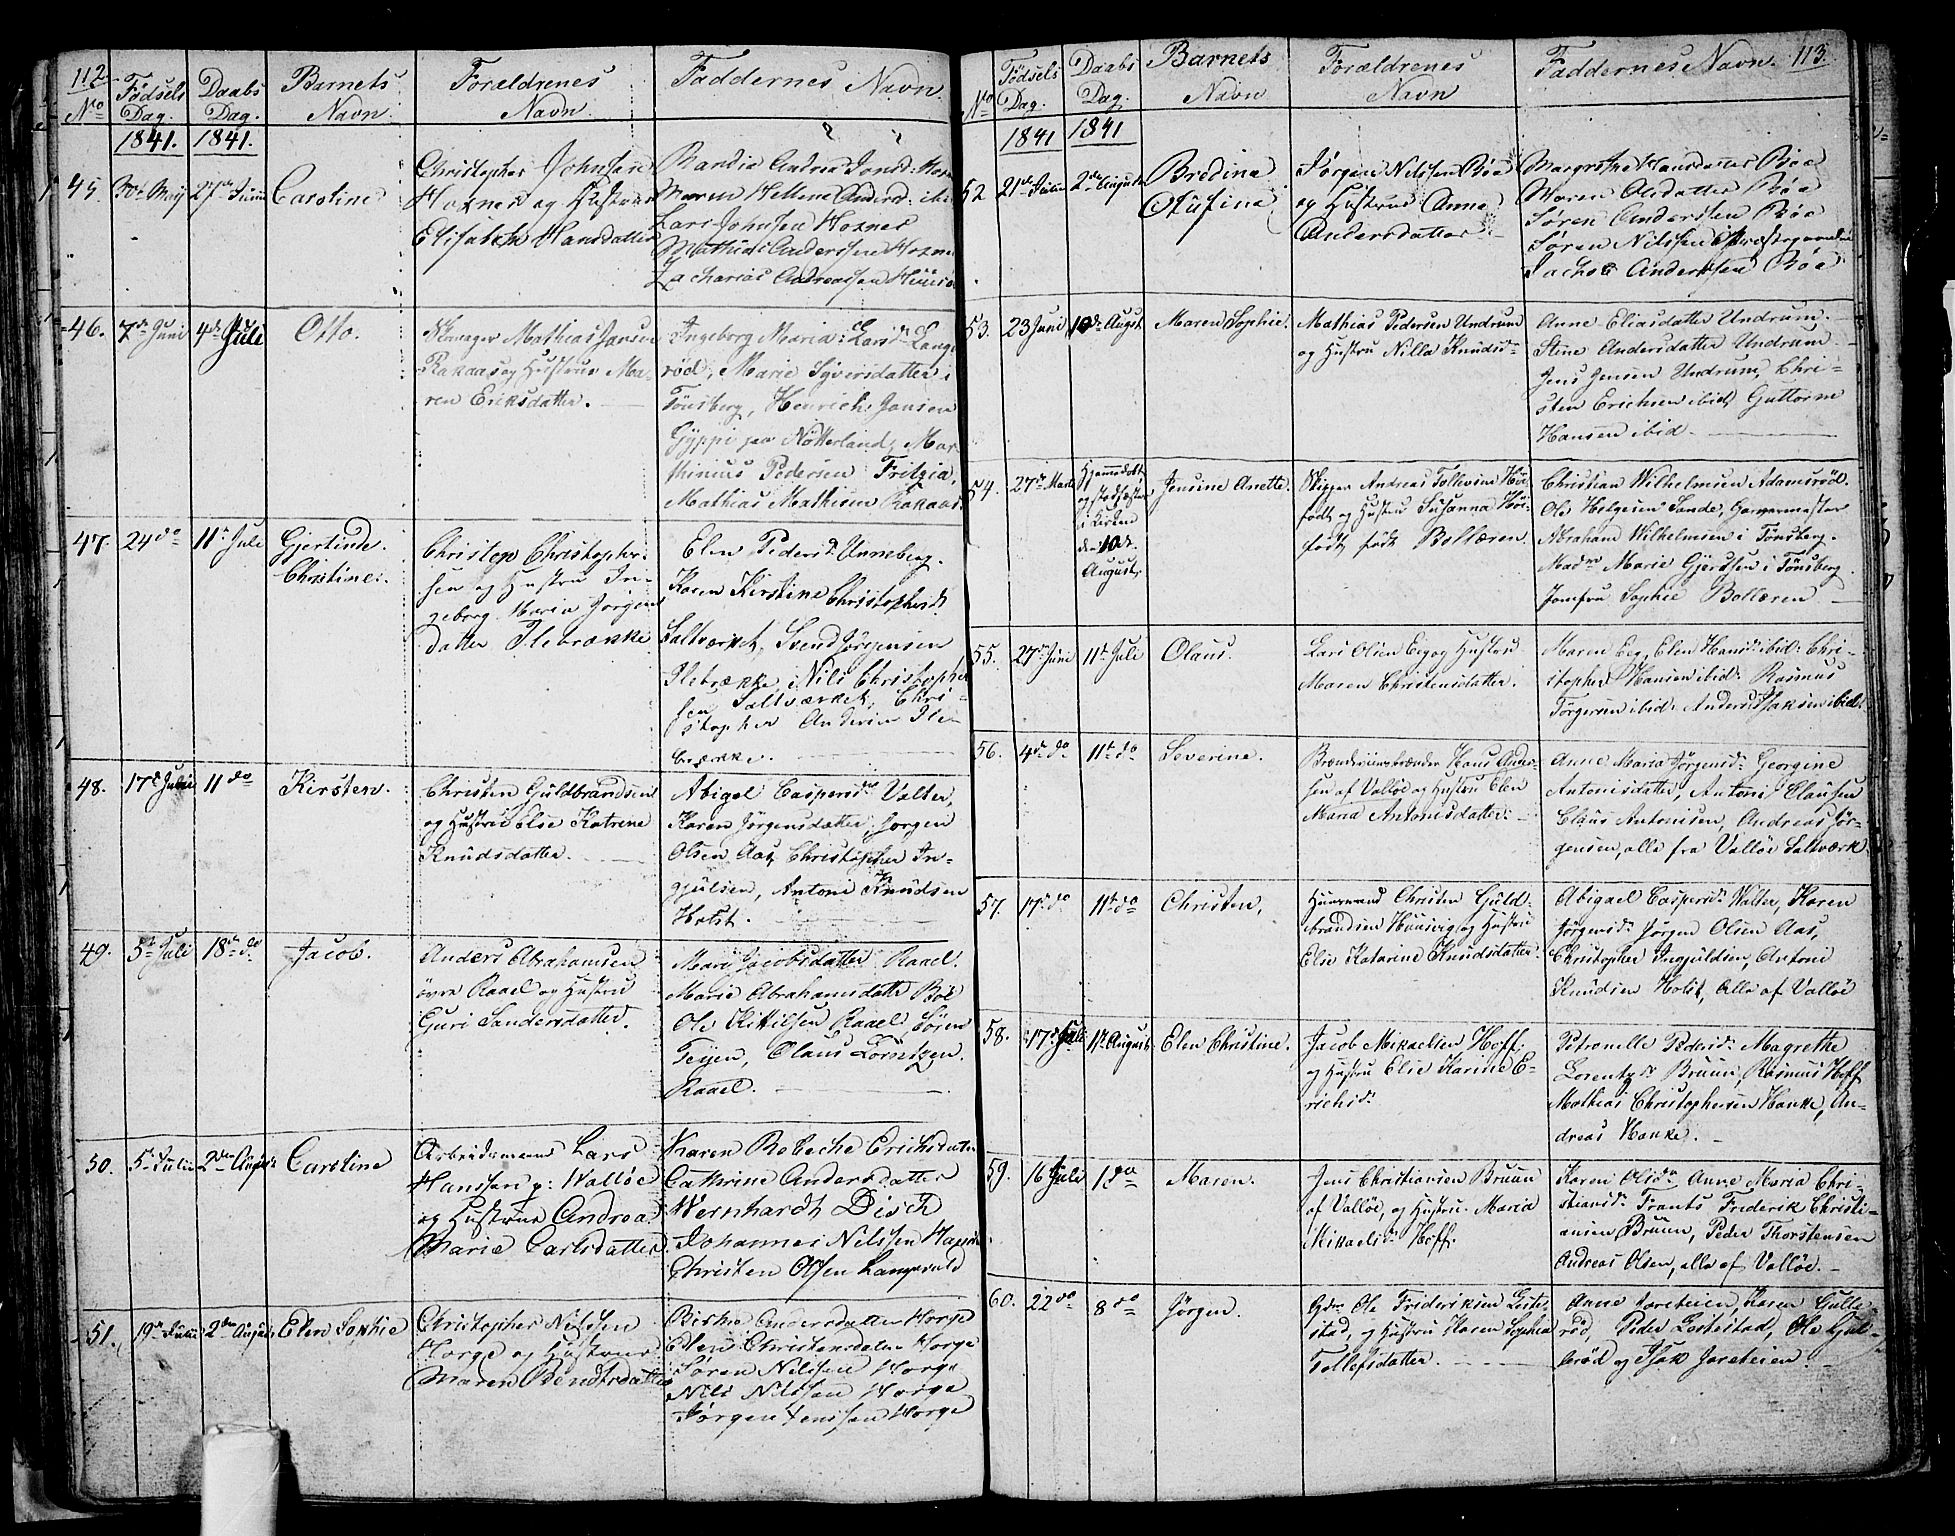 112
No
Fødsels Dag.
Daabs Dag.
Barnets Navn
Forældrenes Navn
Faddernes Navn
1841. 1841.
45. 30te May 27de Junii Caroline
Christopher Johnsen
Hoxnes og Hustrue
Elisabeth Hansdatter
Randia Andrea Jonsd:
Maren Hellene Anderd: ibi
Lars Johnsen Hoxnes
Mathias Anderssen Hoxne
Zacharias Andreassen
46. 7de Juni 4de Juli Otto.
Mathias Jansen
Rakaas og Hustrue Ma-
ren Eriksdatter.
Ingeborg Maria Larsdr Lang-
rød, Marie Syversdatter i
Tønsberg, Henrich Jansen
Gyppi paa Nøtterland, Mar-
thinius Pedersen Fritzia,
Mathias Mathisen Rakaas.
47. 24 do 11te Juli Gjertinde
Christine.
Christop Christopher-
sen og Hustru In-
geborg Maria Jørgens
datter Ilebrænke
Elen Pedersdr Unneberg.
Karen Kirstine Christophersdr
Saltværket, Svend Jørgensen
Ilebrække, Nils Christopher
sen Saltværket, Chri-
stopher Andersen Ile-
brække.
48. 17de 11 do Kirsten.
Christen Guldbrandsen
og Hustru Else Katrine
Knudsdatter.
Abigel Caspersdr Valter,
Karen Jørgensdatter, Jørgen
Olsen Aas, Christopher In-
gjulsen, Antoni Knudsen
Holst.
49. 5te Juli 18de do Jacob.
Anders Abrahamsen
øvre Raael og Hustru
Guri Sandersdatter.
Mari Jacobsdatter Raael.
Marie Abrahamsdatter Bøl
Ole Kittilsen Raael, Søren
Teyen, Olaus Lorntzen
Raael.
50. 5te Julii 2den August Caroline
Arbeidsmand Lars
Hanssen p: Walløe
og Hustrue Andrea
Marie Carlsdatter
Karen Rebeche Ericksdatter
Cathrine Andersdatter
Wernhardt Disch
Johannes Nilssen
Christen Olsen
51. 19de Julii 2den August Elen Sophie
Christopher Nilssen
Horge og Hustrue
Maren Bendtsdatter
Birthe Andersdatter Horge
Elen Christensdatter Horge
Søren Nilssen Horge
Nils Nilssen Horge
Jørgen Jenssen Horge
113.
No
Fødsels Dag.
Daabs Dag.
Barnets Navn
Forældrenes Navn
Faddernes Navn.
1841 1841
52 21de Julii 2den August Bredine
Olufine
Jørgen Nilssen Bøe
og Hustrue Anne
Andersdatter
Margrethe Bøe
Maren Olsdatter Bøe
Søren Anderssen Bøe
Søren Nilssen
Jachob Anderssen Bøe
53. 23 Juni 10de August Maren Sophie.
Mathias Pedersen Undrum
og Hustru Nilla Knudsdr
Anne Eliasdatter Undrum.
Stine Andersdatter Undrum
Jens Jensen Undrum, Chri-
sten Erichsen ibid, Guttorm
Hansen ibid
54. 27de Marts Hjemmedøbt
og stadfæstet
i Kirken
den 10de
August.
Jensine Anette.
Skipper Andreas Tollevsen
og Hustru Susanna
født Bollæren
Christian Wilhelmsen Adamsrød.
Ole Helgesen Sande, Garvermester
Abraham Wilhelmsen i Tønsberg.
Madme Marie Gjerdsen i Tønsberg
Jomfru Sophie Bollæren
55. 27de Juni 11te Juli Olaus.
Lars Olsen Eeg og Hustru
Maren Christensdatter.
Maren Eeg, Elen Hansdr ibid. Chri-
stopher Hansen ibid. Rasmus
Torgersen ibid. Anders Isaksen ibid
56. 4de do 11te do Severine.
Hans Anders-
sen af Valløe og Hustru Elen
Maria Antonisdatter.
Anne Maria Jørgensdr Georgine
Antonisdatter, Antoni Clausen
Claus Antonisen, Andreas Jør-
gensen, alle fra Valløe Saltværk.
57. 17de do 11te do Christen.
Huusmand Christen Guld-
brandsen og Hustru
Else Katarine Knudsdatter.
Abigael Caspersdr Valter, Karen
Jørgensdr Jørgen Olsen Aas,
Christopher Ingjuldsen, Antoni
Knudsen Holst, Alle af Valløe
58. 17de Juli 1te August Elen Christine.
Jacob Mikaelsen Hoff.
og Hustru Else Karine E-
richsdr
Petronelle Pedersdr Magrethe
Lorentzdr Bruun, Rasmus Hoff
Mathias Christophersen Hanke, An-
dreas Hanke.
59. 16 Juli 1 do Maren.
Jens Christiansen Bruun
af Valløe, og Hustru Maria
Mikaelsdr Hoff.
Karen Olsdr Anne Maria Chri-
stiansdr Frants Frederik Christi-
ansen Bruun, Peder Thorstensen
Andreas Olsen, alle af Valløe.
60. 22 do 8 do Jørgen.
Gdm Ole Frideriksen
stad, og Hustru Karen Sophia
Tollefsdatter.
Anne Jareteien, Karen Gulle-
rød, Peder Ole Gul-
lerød og Isak Jareteien